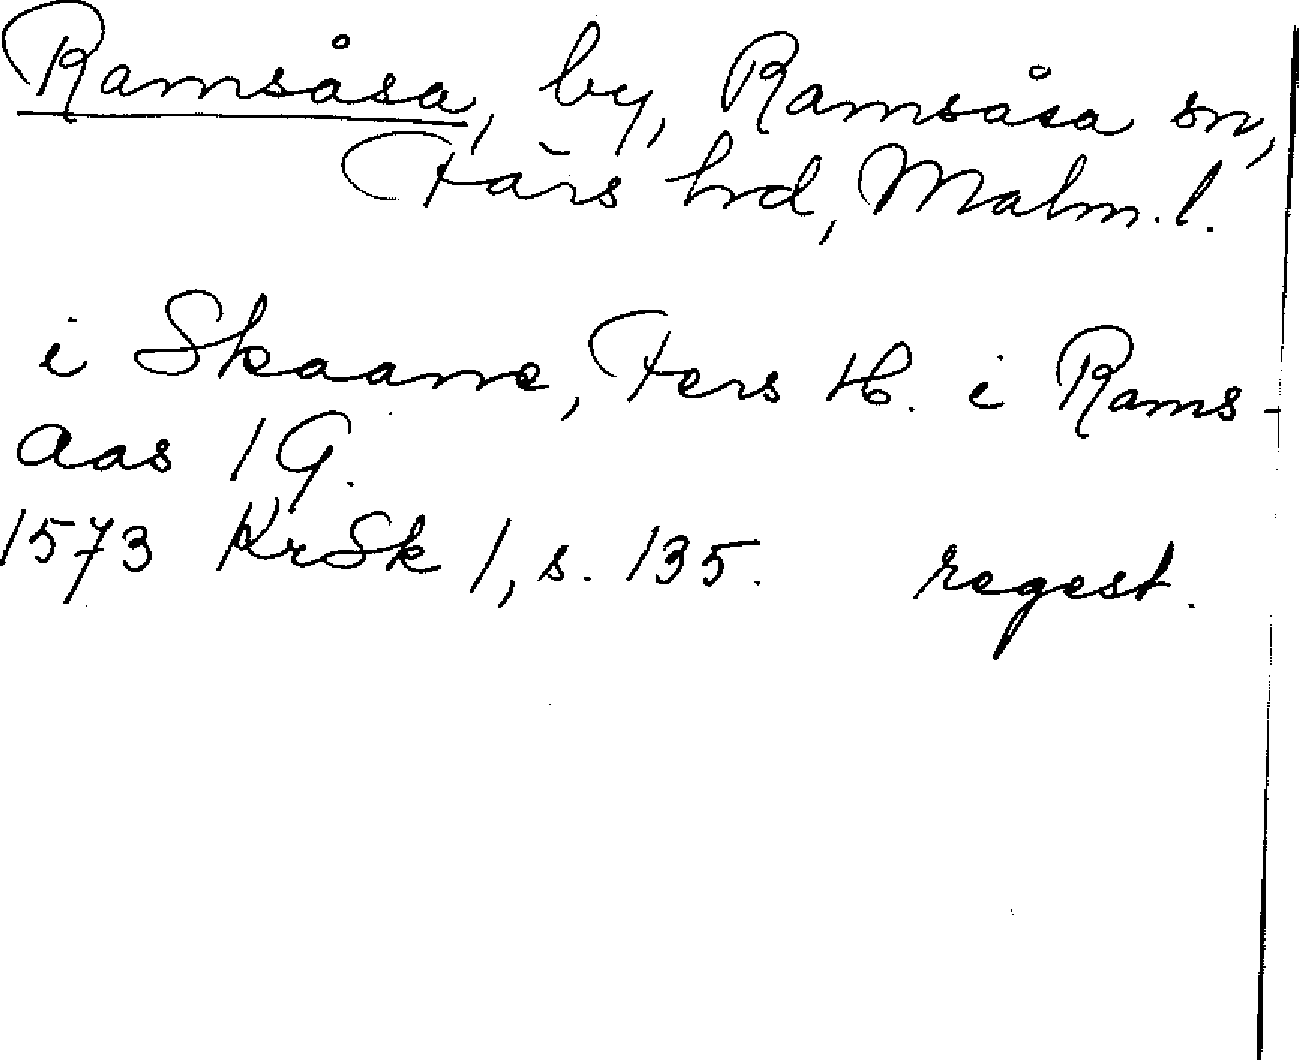 Ramsåsa, by, Ramsåsa sn,
Färs hd, Malm. l.
i Skaane, Fers H. i Rams-
aas 1 G.
1573 KrSk 1, s. 135. regest.